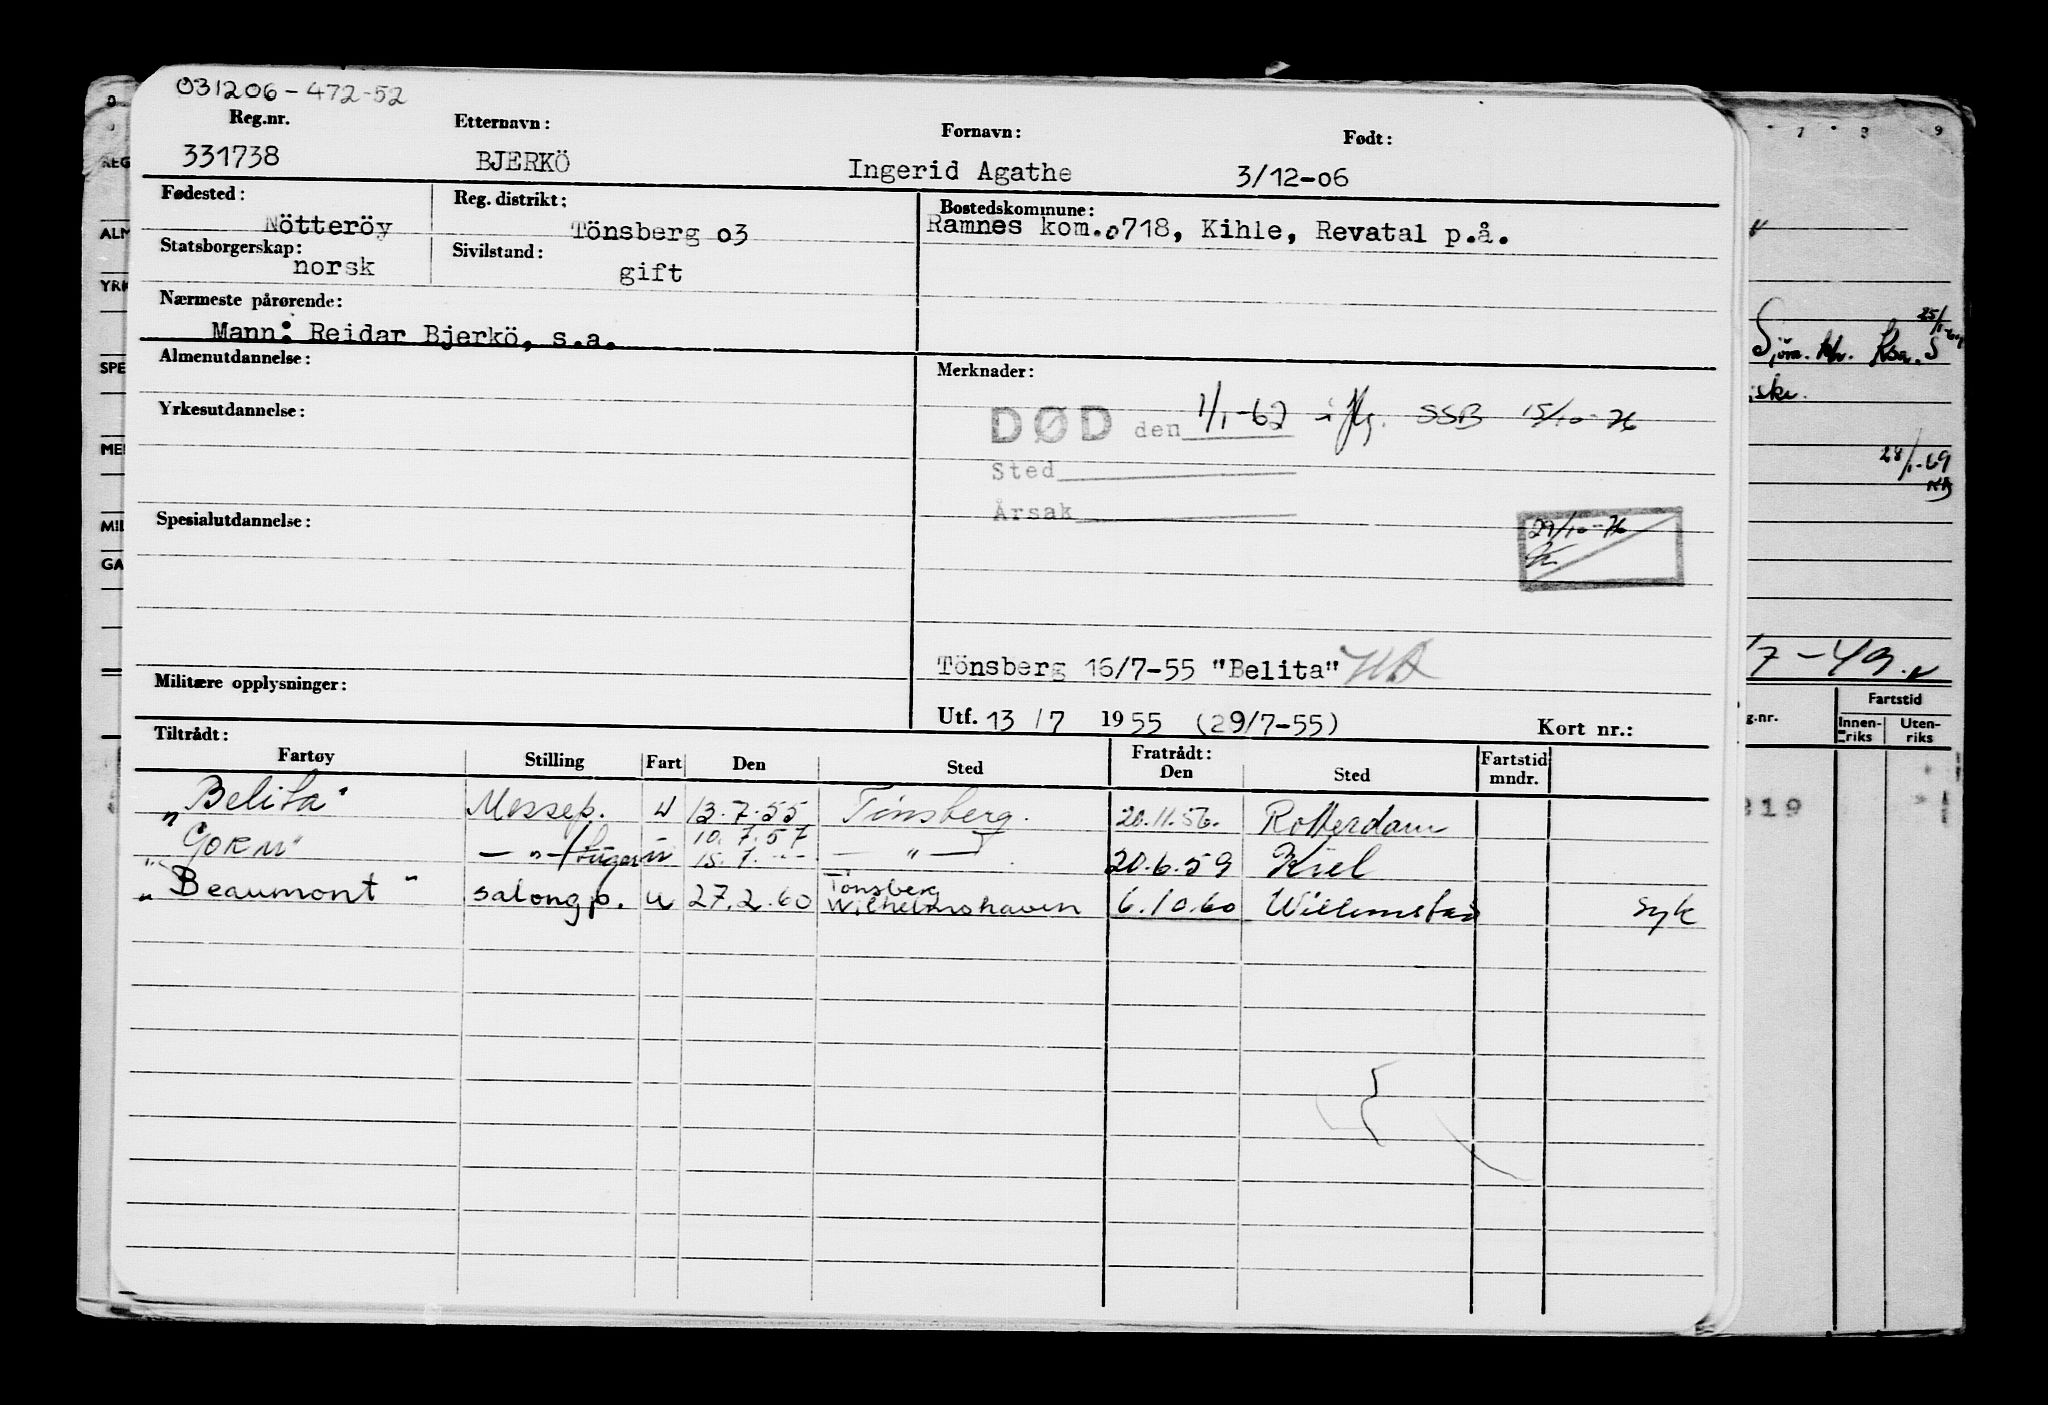 031206-472-52
Reg.nr. Etternavn: Fornavn: Født:
331738 BJERKÖ Ingerid Agathe 3/12-06
Fødested: Reg. distrikt: Bostedskommune:
Nötteröy Tönsberg 03 Ramnes kom.0718, Kihle, Revatal p.å.
Statsborgerskap: Sivilstand:
norsk gift
Nærmeste pårørende:
Mann: Reidar Bjerkö, s.a.
Almenutdannelse: Merknader:
Yrkesutdannelse:
DØD den 1/1-62 SSB 15/10-76
Sted
Årsak
Spesialutdannelse:
29/10-76
Tönsberg 16/7-55 "Belita"
Militære opplysninger:
Utf. 13/7 1955 (29/7-55) Kort nr.:
Tiltrådt: Fratrådt:
Fartøy Stilling Fart Den Sted Den Sted Fartstid mndr.
"Belita" Messep. u 13.7.55 Tönsberg. 20.11.56. Rotterdam
10.7.57
"Gorm" — " — u 15.7. — " — 20.6.59 Kiel
Tönsberg
"Beaumont" salongp. u 27.2.60 Wilhelmshaven 6.10.60 Willemstad syk
7 8 9
REG
ALM
YRK
SPE
MEL
MIL
GA
25/1-69
Sjöm.
28/1-69
/7-49.
g.nr. Fartstid
Innen-riks Uten-riks
219